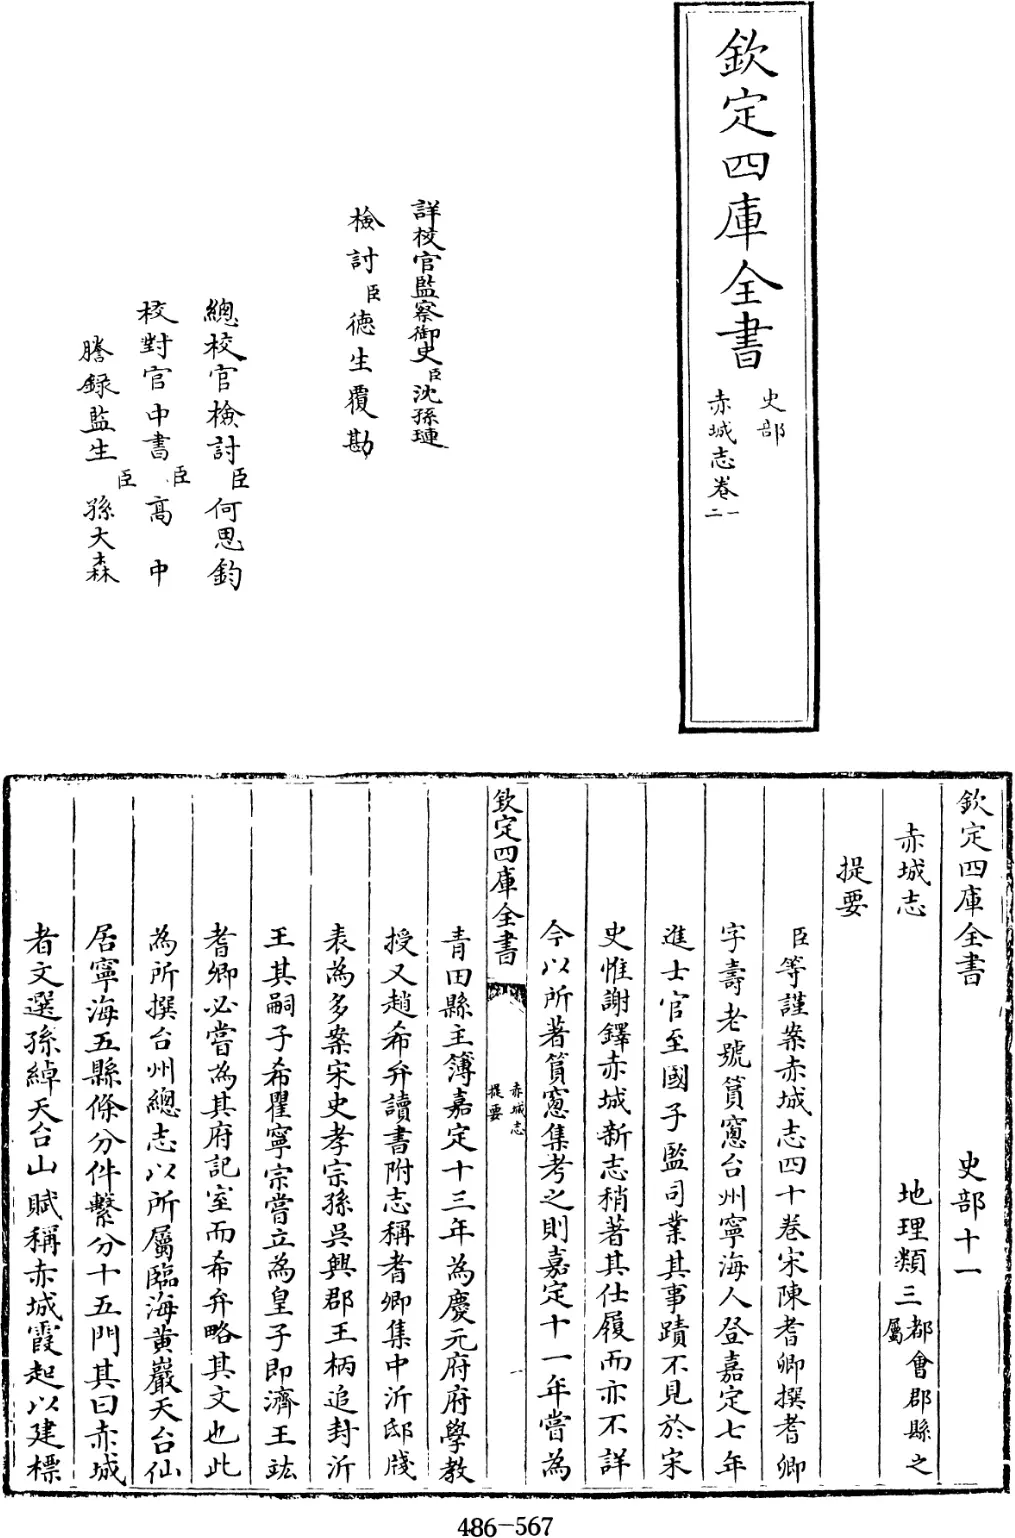 欽定四庫全書
史部
赤城志卷一
二
詳校官監察御史臣沈孫璉
檢討臣德生覆勘
總校官檢討臣何思鈞
校對官中書臣高中
謄錄監生臣孫大森
欽定四庫全書 史部十一
赤城志 地理類三都會郡縣之屬
提要
臣等謹案赤城志四十卷宋陳耆卿撰耆卿
字壽老號篔窻台州寧海人登嘉定七年
進士官至國子監司業其事蹟不見於宋
史惟謝鐸赤城新志稍著其仕履而亦不詳
今以所著篔窻集考之則嘉定十一年嘗為
欽定四庫全書 赤城志提要 一
青田縣主簿嘉定十三年為慶元府府學教
授又趙希弁讀書附志稱耆卿集中沂邸牋
表為多案宋史孝宗孫吳興郡王柄追封沂
王其嗣子希瞿寧宗嘗立為皇子即濟王竑
耆卿必嘗為其府記室而希弁略其文也此
為所撰台州總志以所屬臨海黃巖天台仙
居寧海五縣條分件繫分十五門其曰赤城
者文選孫綽天台山賦稱赤城霞起以建標
486-567